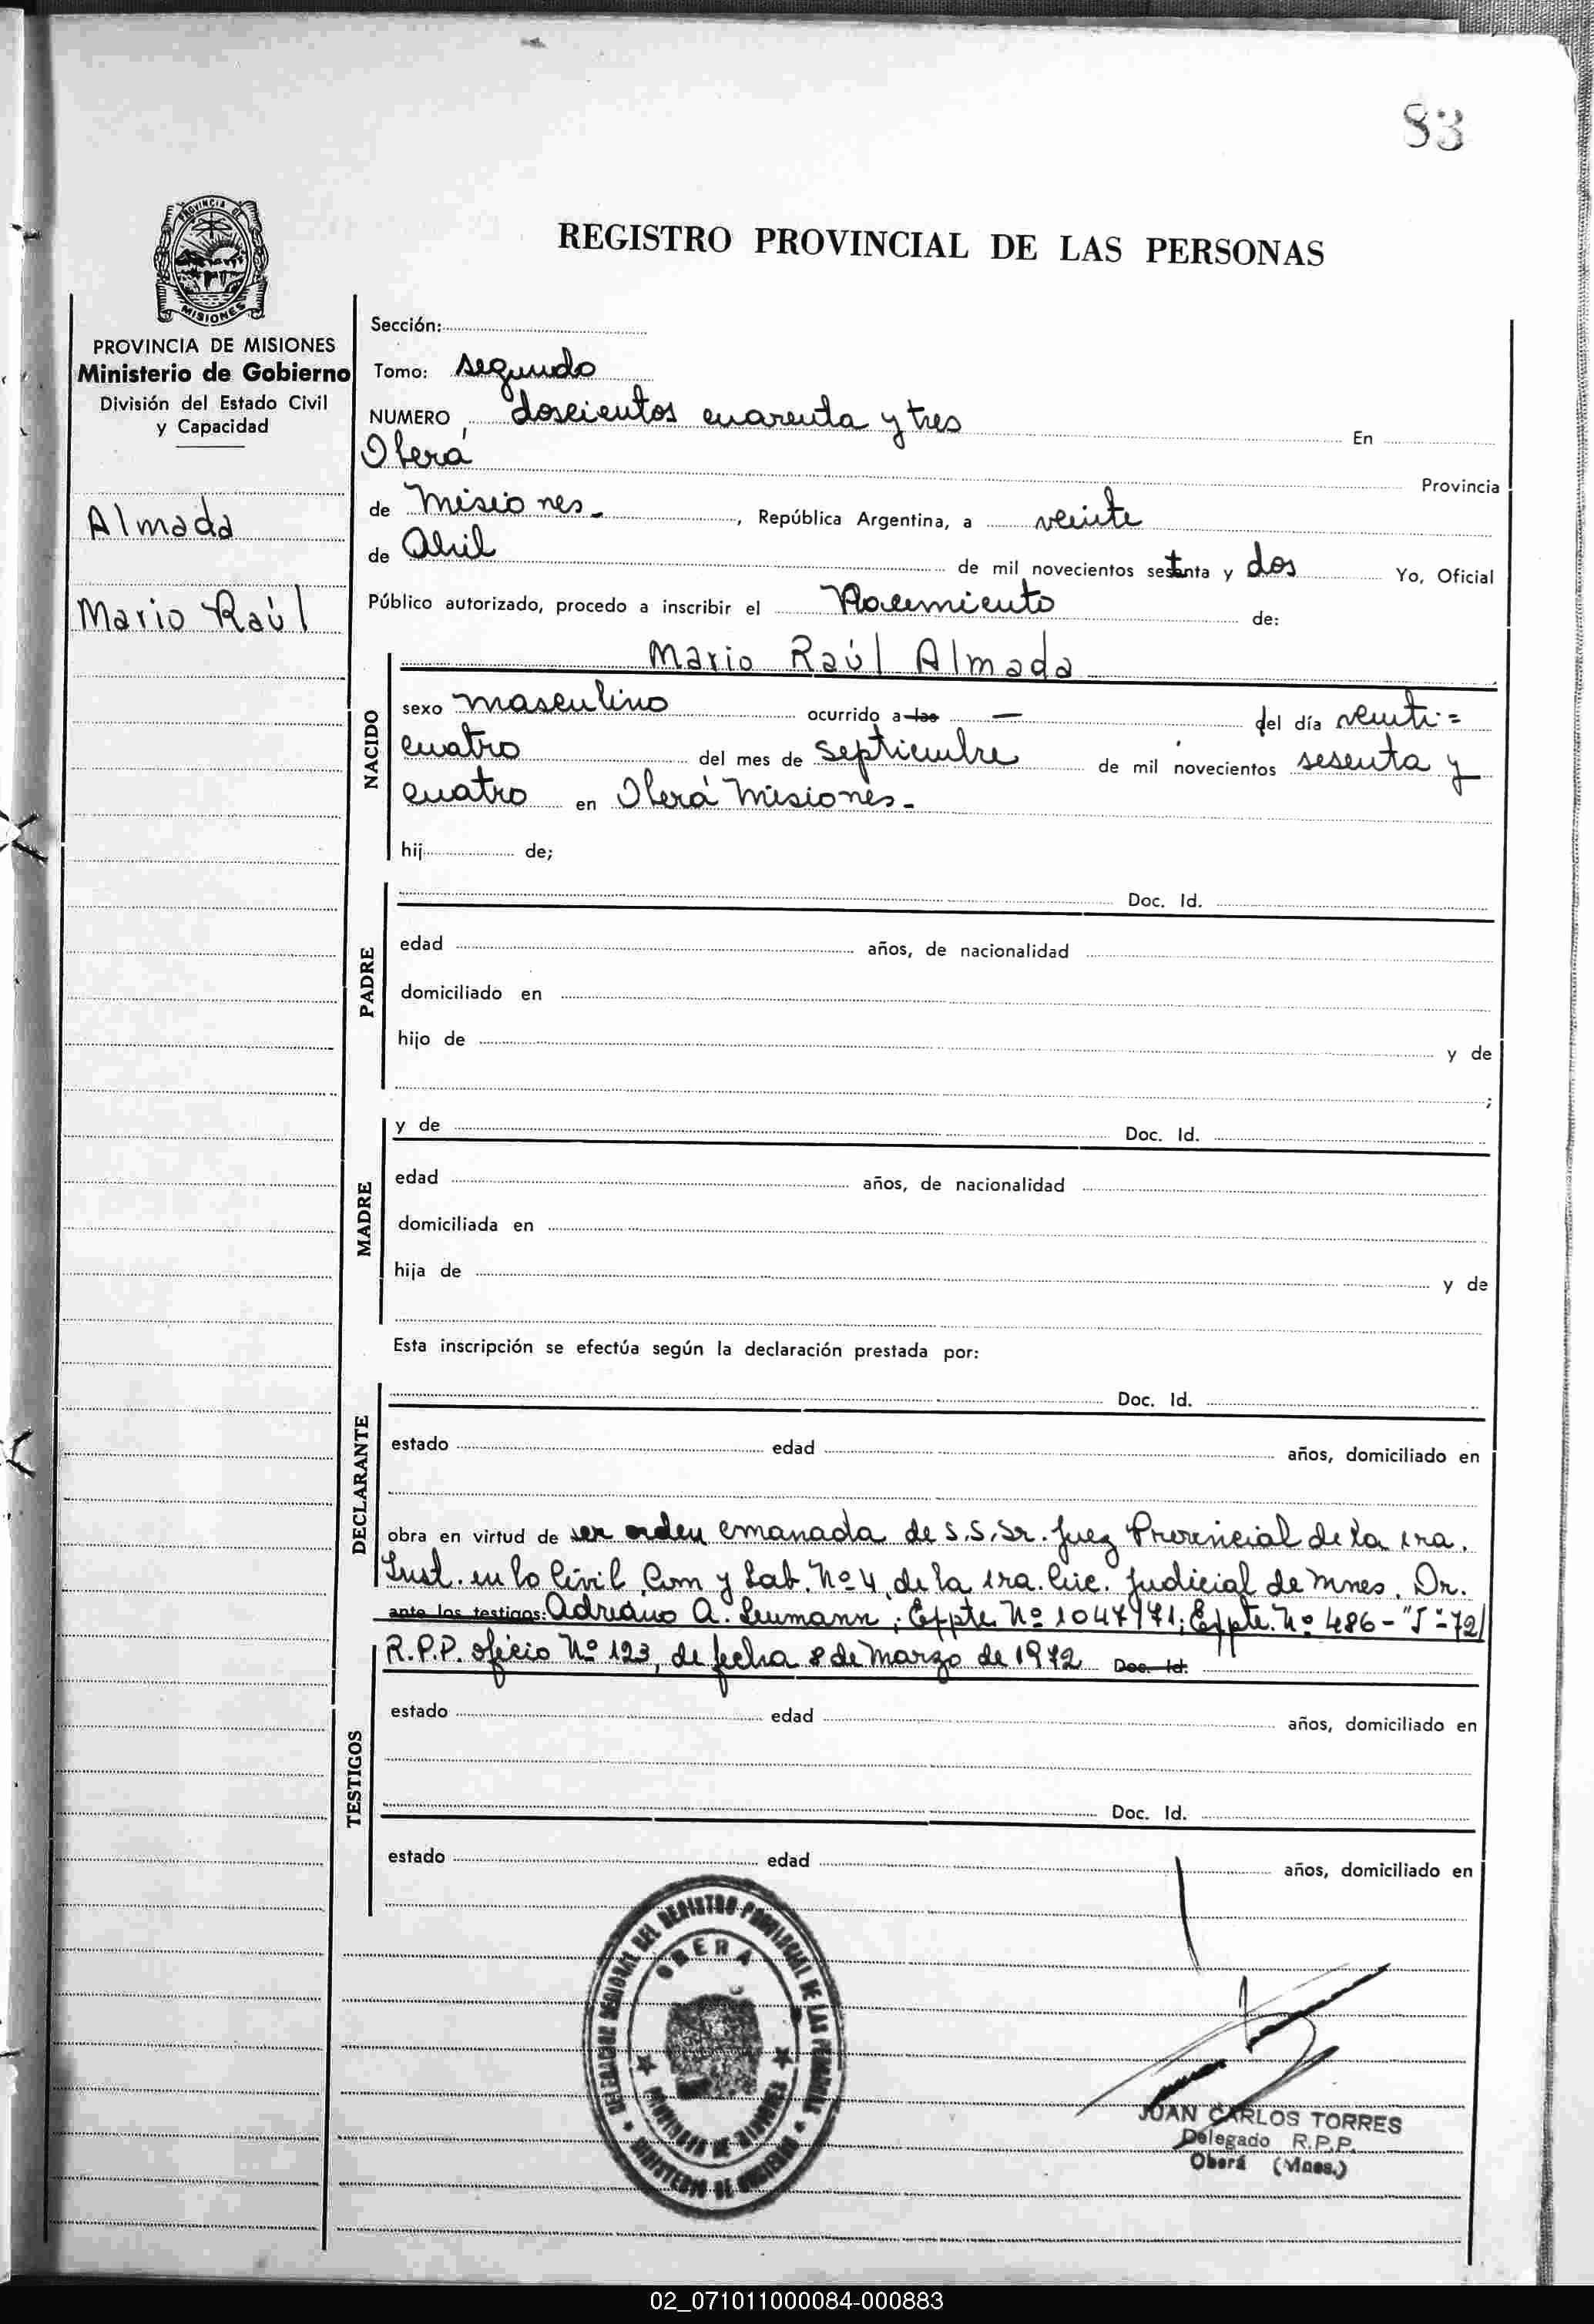 83
REGISTRO PROVINCIAL DE LAS PERSONAS
PROVINCIA DE
MISIONES
PROVINCIA DE MISIONES
Ministerio de Gobierno
División del Estado Civil
y Capacidad
Almada
Mario Raúl
Sección:
Tomo: segundo
NUMERO doscientos cuarenta y tres En
Oberá Provincia
de Misiones.- , República Argentina, a veinte
de Abril de mil novecientos setenta y dos Yo, Oficial
Público autorizado, procedo a inscribir el Nacimiento de:
Mario Raúl Almada
NACIDO
sexo masculino ocurrido a las — del día veinti=
cuatro del mes de septiembre de mil novecientos sesenta y
cuatro en Oberá Misiones.-
hij de;
PADRE
Doc. Id.
edad años, de nacionalidad
domiciliado en
hijo de y de
;
MADRE
y de Doc. Id.
edad años, de nacionalidad
domiciliada en
hija de y de
Esta inscripción se efectúa según la declaración prestada por:
DECLARANTE
Doc. Id.
estado edad años, domiciliado en
obra en virtud de ser orden emanada de S.S. Sr. Juez Provincial de la 1ra.
Inst. en lo Civil, Com y Lab. Nº 4, de la 1ra. Circ. Judicial de Mnes. Dr.
ante los testigos: Adriano A. ; Expte. Nº 1047/71; Expte. Nº 486-"J"-72/
R.P.P. oficio Nº 123, de fecha 8 de Marzo de 1972 Doc. Id.
TESTIGOS
estado edad años, domiciliado en
Doc. Id.
estado edad años, domiciliado en
DEL REGISTRO PROVINCIAL DE LAS PERSONAS
OBERA
PROVINCIA DE MISIONES
MINISTERIO DE GOBIERNO
JUAN CARLOS TORRES
Delegado R.P.P.
Oberá (Mnes.)
02_071011000084-000883